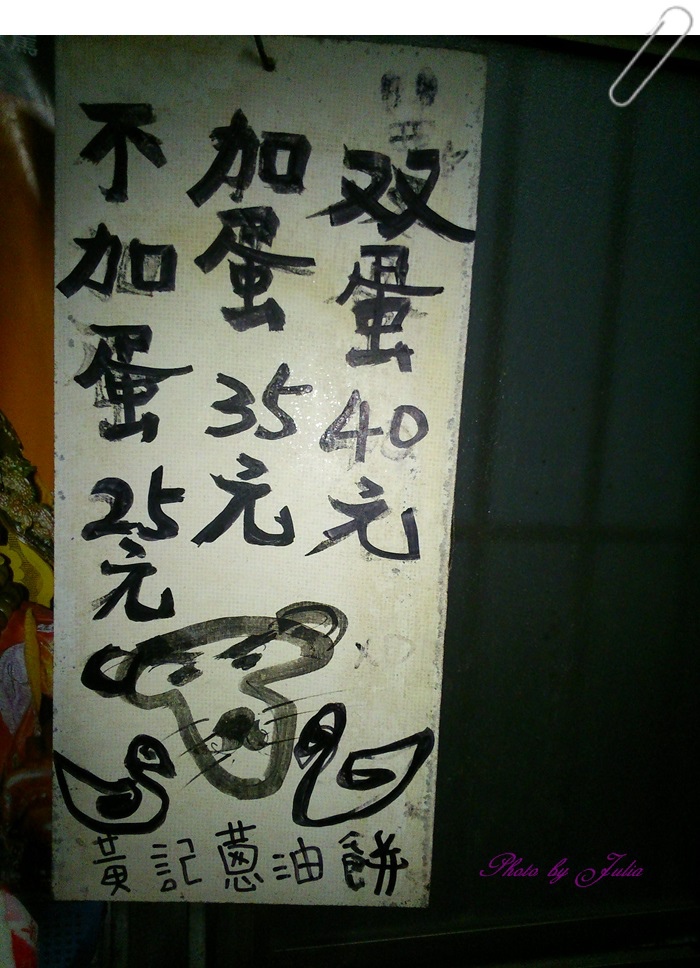 双蛋40元
加蛋35元
不加蛋25元
黃記蔥油餅
Photo by Julia